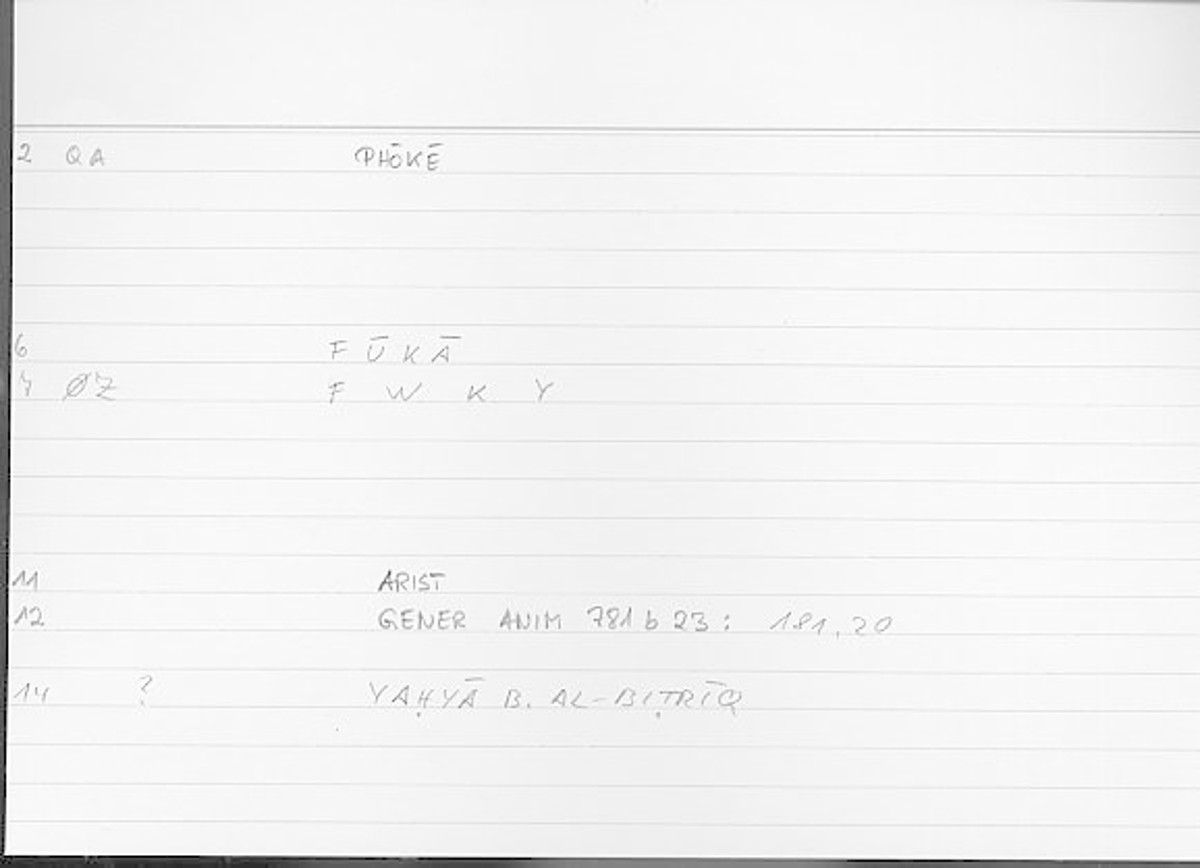 2 QA PHŌKĒ
6 FŪKĀ
7 ØZ F W K Y
11 ARIST
12 GENER ANIM 781 b 23: 181,20
14 ? YAḤYĀ B. AL-BIṬRĪQ